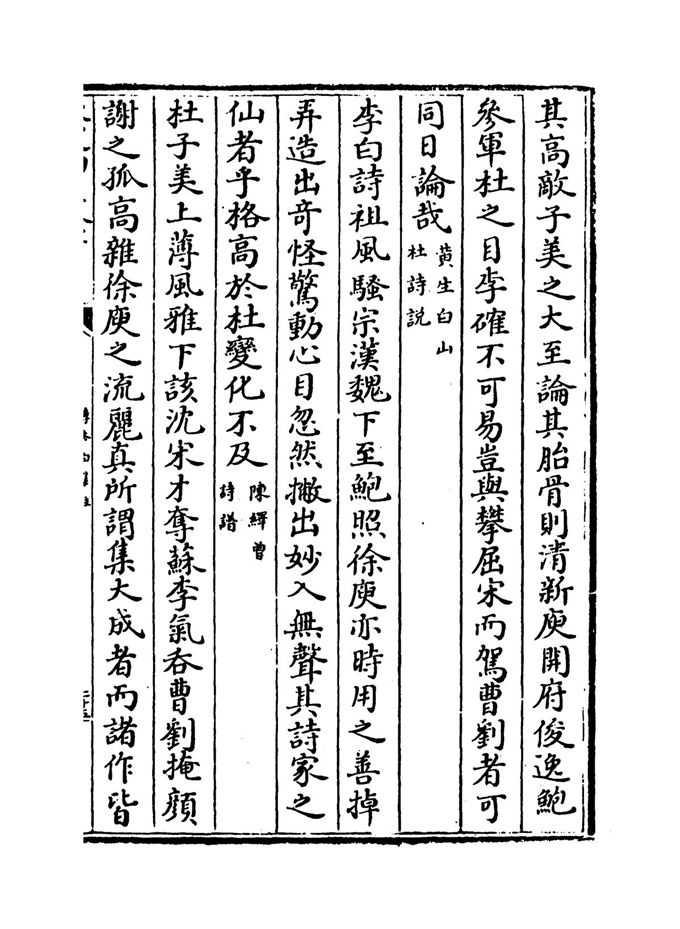 其高敵子美之大至論其胎骨則清新庾開府俊逸鮑
參軍杜之目李確不可易豈與攀屈宋而駕曹劉者可
同日論哉黃生白山
杜詩説
李白詩祖風騷宗漢魏下至鮑照徐庾亦時用之善掉
弄造出奇怪驚動心目忽然撇出妙入無聲其詩家之
仙者乎格高於杜變化不及陳繹曾
詩譜
杜子美上薄風雅下該沈宋才奪蘇李氣吞曹劉掩顔
謝之孤高雜徐庾之流麗真所謂集大成者而諸作皆